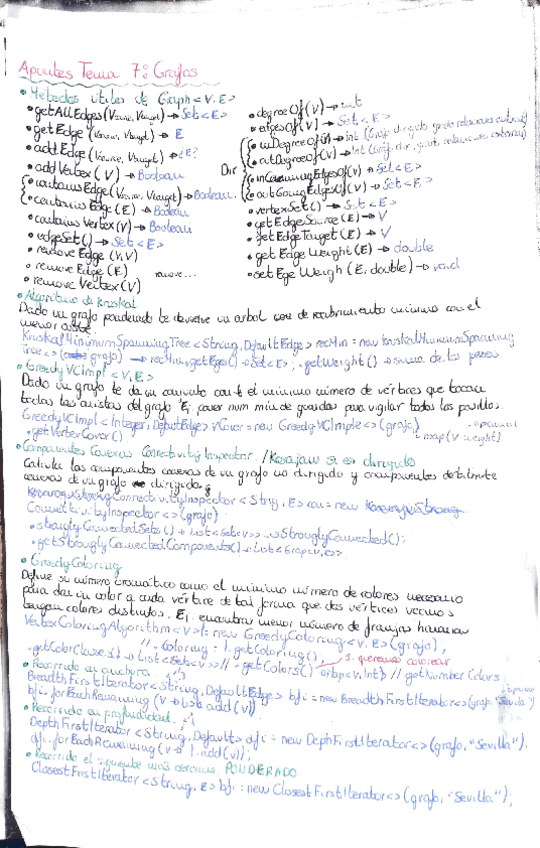 Apuntes Tema 7: Grafos
• Métodos útiles de Graph<V,E>
• getAllEdges(Vsource, Vtarget) → Set<E>
• getEdge(Vsource, Vtarget) → E
• addEdge(Vsource, Vtarget) → ¿E?
• addVertex(V) → Boolean
• containsEdge(Vsource, Vtarget) → Boolean.
• containsEdge(E) → Boolean
• containsVertex(V) → Boolean
• edgeSet() → Set<E>
• removeEdge(V,V)
• removeEdge(E) remove...
• removeVertex(V)
• degreeOf(V) → int
• edgesOf(V) → Set<E>
Dir
• inDegreeOf(V) → int (Graf. dirigido, grado relaciones
• outDegreeOf(V) → int (Graf. dir, grado, relaciones
• inComingEdgesOf(V) → Set<E>
• outGoingEdgesOf(V) → Set<E>
• vertexSet() → Set<E>
• getEdgeSource(E) → V
• getEdgeTarget(E) → V
• getEdgeWeight(E) → double
• setEgeWeigh(E, double) → void
• Algoritmo de kruskal
Dado un grafo ponderado te devuelve un arbol de recubrimiento mínimo con el
menor coste.
KruskalMinimumSpanningTree<String, DefaultEdge> recMin = new kruskalMinimumSpanning
Tree<>(grafo) → recMin.getEges() → Set<E>; .getWeight() → suma de los pesos
• GreedyVCImpl<V,E>
Dado un grafo te da un conjunto con el mínimo número de vértices que tocan
todas las aristas del grafo Ej. poner num min de guardas para vigilar todos los pasillos.
GreedyVCImpl<Integer, DefaultEdge> vCover = new GreedyVCImpl<>(grafo)
• getVertexCover() + map(v weight)
• opcional
• Componentes Conexas ConnectivityInspector. /Kosaraju si es dirigido
Calcula las componentes conexas de un grafo no dirigido y componentes fuertemente
conexas de un grafo dirigido
KosarajuStrongConnectivityInspector<String, E> con = new KosarajuStrong
ConnectivityInspector<>(grafo)
• stronglyConnectedSets() → List<Set<V>> isStronglyConnected():
• getStronglyConnectedComponents() → List<Graph<V,E>>
• GreedyColoring
Define su número cromático como el mínimo número de colores necesario
para dar un color a cada vértice de tal forma que dos vértices vecinos
tengan colores distintos. Ej. encontrar menor número de franjas horarias
VertexColoringAlgorithm<V> l = new GreedyColoring<V,E>(grafo),
// Coloring = l.getColoring(); s. queremos colorear
• getColorClases() → List<Set<V>> // • getColors() → Map<V,Int> // getNumberColors
• Recorrido en anchura
BreadthFirstIterator<String, DefaultEdge> bfi = new BreadthFirstIterator<>(graph, "Sevilla")
bfi.forEachRemaining(v → list.add(v))
• Recorrido en profundidad.
DepthFirstIterator<String, Default> dfi = new DephFirstIterator<>(grafo, "Sevilla").
dfi.forEachRemaining(v → l.add(v));
• Recorrido el siguiente más cercano PONDERADO
ClosestFirstIterator<String, E> bfi = new ClosestFirstIterator<>(grafo, "Sevilla");